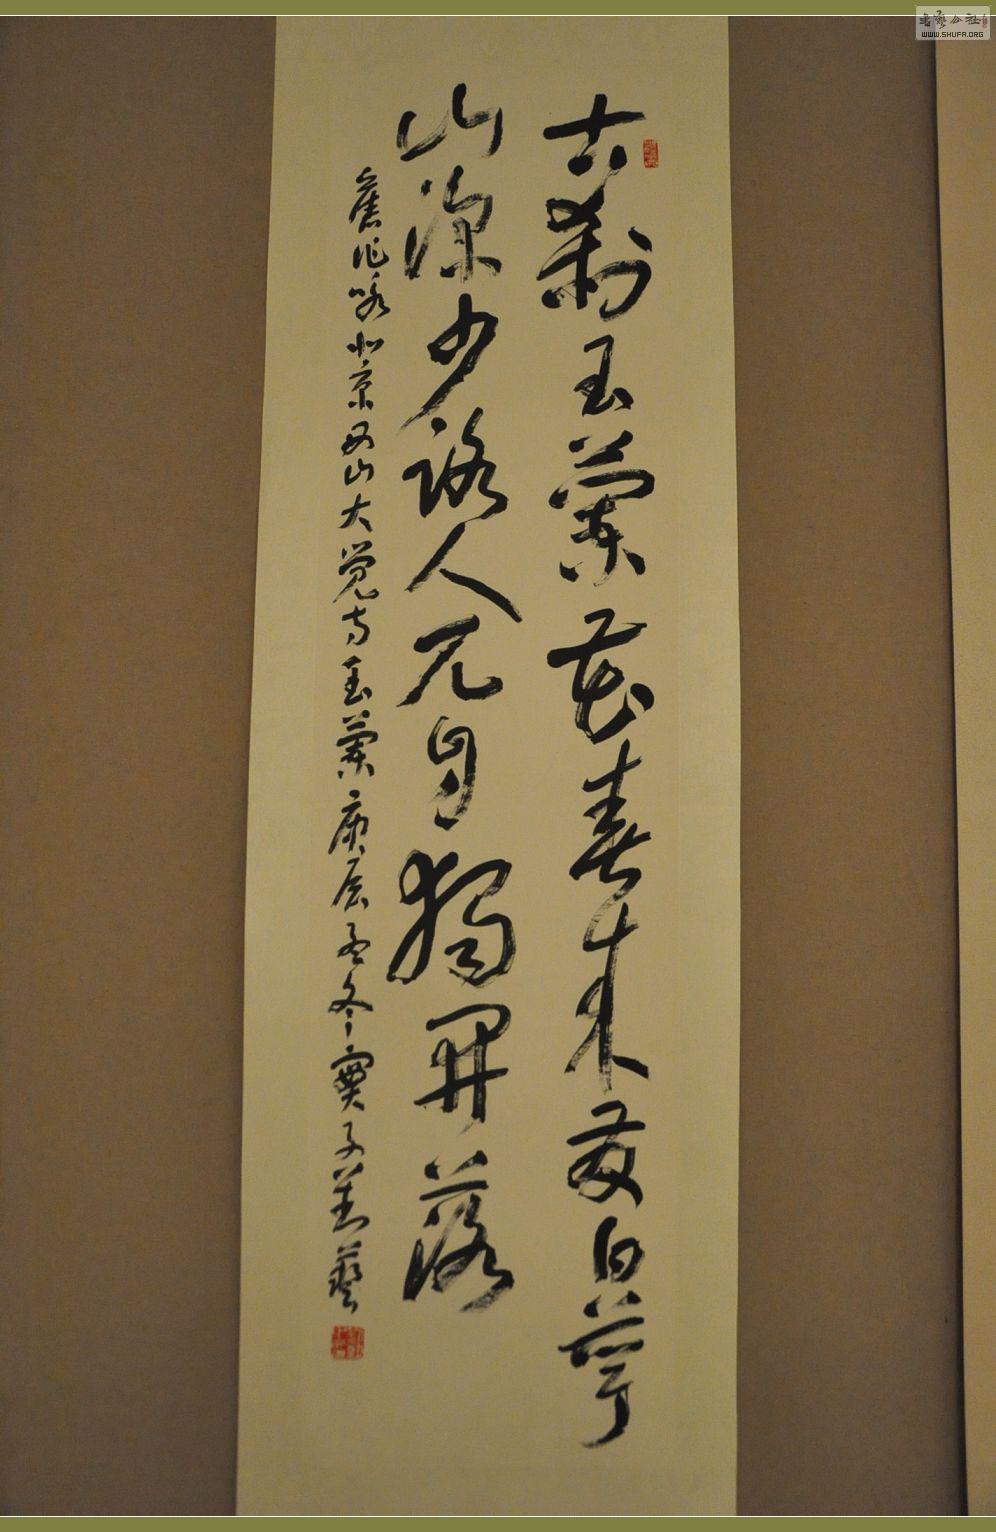 古刹玉兰花春来发白萼
山深少路人兀自独开落
旧作咏北京西山大觉寺玉兰庚辰孟冬 子善艺
书艺公社
WWW.SHUFA.ORG